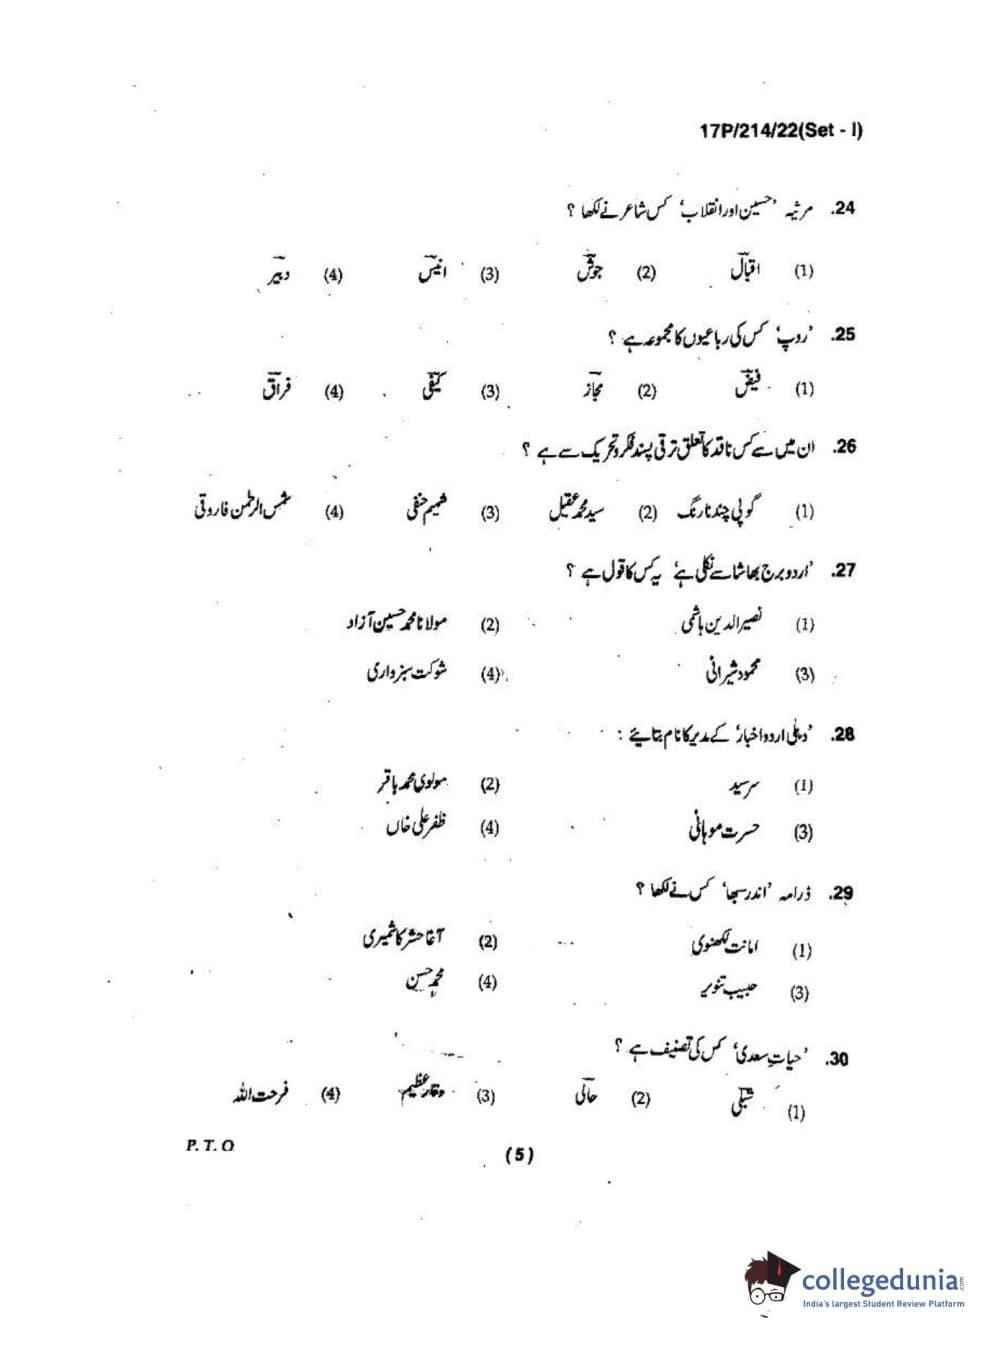 17P/214/22(Set - I)
24. مرثیہ ’حسین اور انقلاب‘ کس شاعر نے لکھا ؟
(1) اقبالؔ (2) جوشؔ (3) انیسؔ (4) دبیرؔ
25. ’روپ‘ کس کی رباعیوں کا مجموعہ ہے ؟
(1) فیضؔ (2) مجازؔ (3) کیفیؔ (4) فراقؔ
26. ان میں سے کس ناقد کا تعلق ترقی پسند فکر و تحریک سے ہے ؟
(1) گوپی چند نارنگ (2) سید محمد عقیل (3) شمیم حنفی (4) شمس الرحمن فاروقی
27. ’اردو برج بھاشا سے نکلی ہے‘ یہ کس کا قول ہے ؟
(1) نصیر الدین ہاشمی (2) مولانا محمد حسین آزاد
(3) محمود شیرانی (4) شوکت سبزواری
28. ’دہلی اردو اخبار‘ کے مدیر کا نام بتایئے :
(1) سرسید (2) مولوی محمد باقر
(3) حسرت موہانی (4) ظفر علی خاں
29. ڈرامہ ’اندر سبھا‘ کس نے لکھا ؟
(1) امانت لکھنوی (2) آغا حشر کاشمیری
(3) حبیب تنویر (4) محمد حسن
30. ’حیاتِ سعدی‘ کس کی تصنیف ہے ؟
(1) شبلیؔ (2) حالیؔ (3) وقار عظیم (4) فرحت اللہ
P. T. O
(5)
collegedunia.com
India's largest Student Review Platform